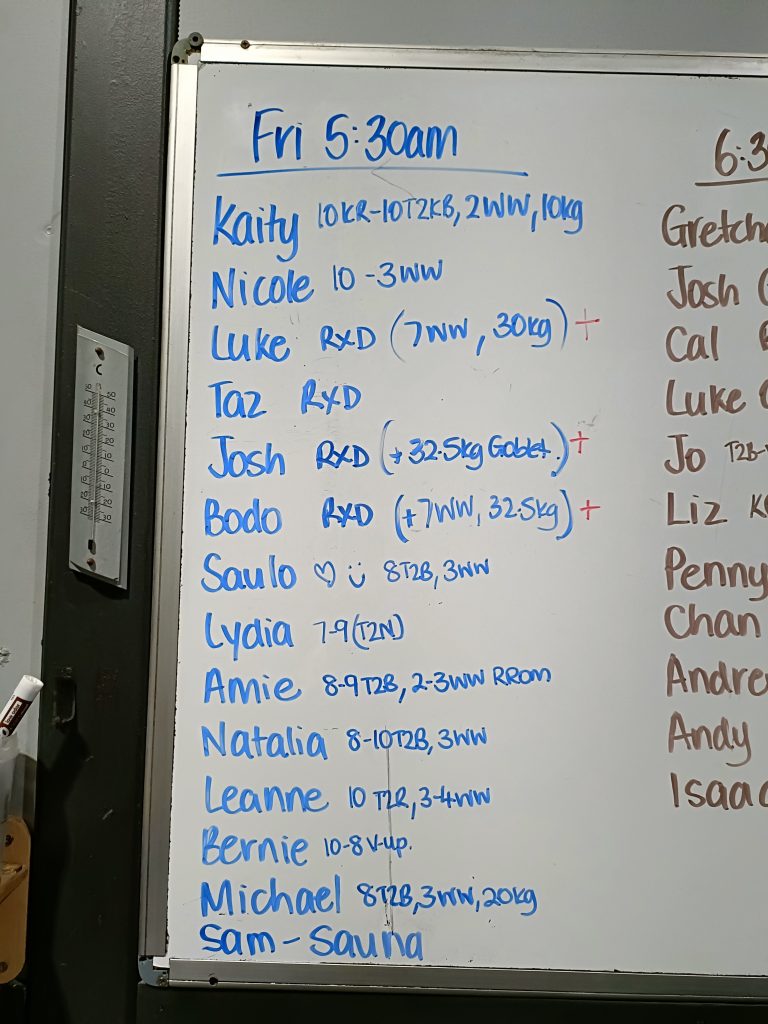 Fri 5:30am
Kaity 10KR-10T2KB, 2WW, 10kg
Nicole 10-3WW
Luke RXD (7WW, 30kg) +
Taz RXD
Josh RXD (+32.5kg Goblet.) +
Bodo RXD (+7WW, 32.5kg) +
Saulo ♡ ü 8T2B, 3WW
Lydia 7-9(T2N)
Amie 8-9T2B, 2-3WW RROM
Natalia 8-10T2B, 3WW
Leanne 10 T2R, 3-4WW
Bernie 10-8 V-up.
Michael 8T2B, 3WW, 20kg
Sam - Sauna
6:3
Gretch
Josh
Cal
Luke
Jo T2B-
Liz
Penny
Chan
Andre
Andy
Isaac